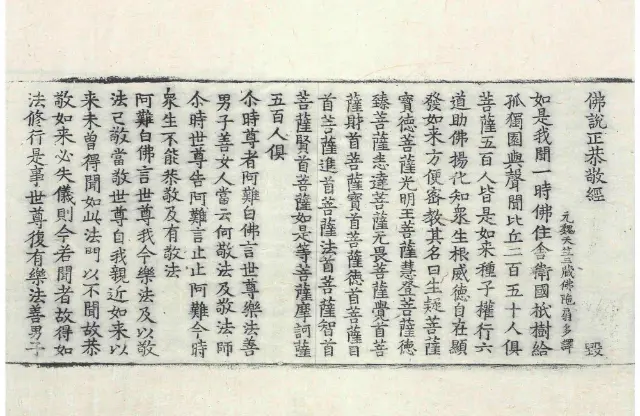 佛說正恭敬經 毀
元魏天竺三藏佛陁扇多譯
如是我聞一時佛住舍衛國祇樹給
孤獨園與聲聞比丘二百五十人俱
菩薩五百人皆是如來種子權行六
道助佛揚化知衆生根威德自在顯
發如來方便密教其名曰生疑菩薩
寶德菩薩光明王菩薩慧登菩薩德
臻菩薩悉達菩薩无畏菩薩覺首菩
薩財首菩薩寶首菩薩德首菩薩目
首菩薩進首菩薩法首菩薩智首
菩薩賢首菩薩如是等菩薩摩訶薩
五百人俱
尒時尊者阿難白佛言世尊樂法善
男子善女人當云何敬法及敬法師
尒時世尊告阿難言止止阿難今時
衆生不能恭敬及有敬法
阿難白佛言世尊我今樂法及以敬
法已敬當敬世尊自我親近如來以
來未曾得聞如此法門以不聞故恭
敬如來必失儀則今若聞者故得如
法修行是事世尊復有樂法善男子